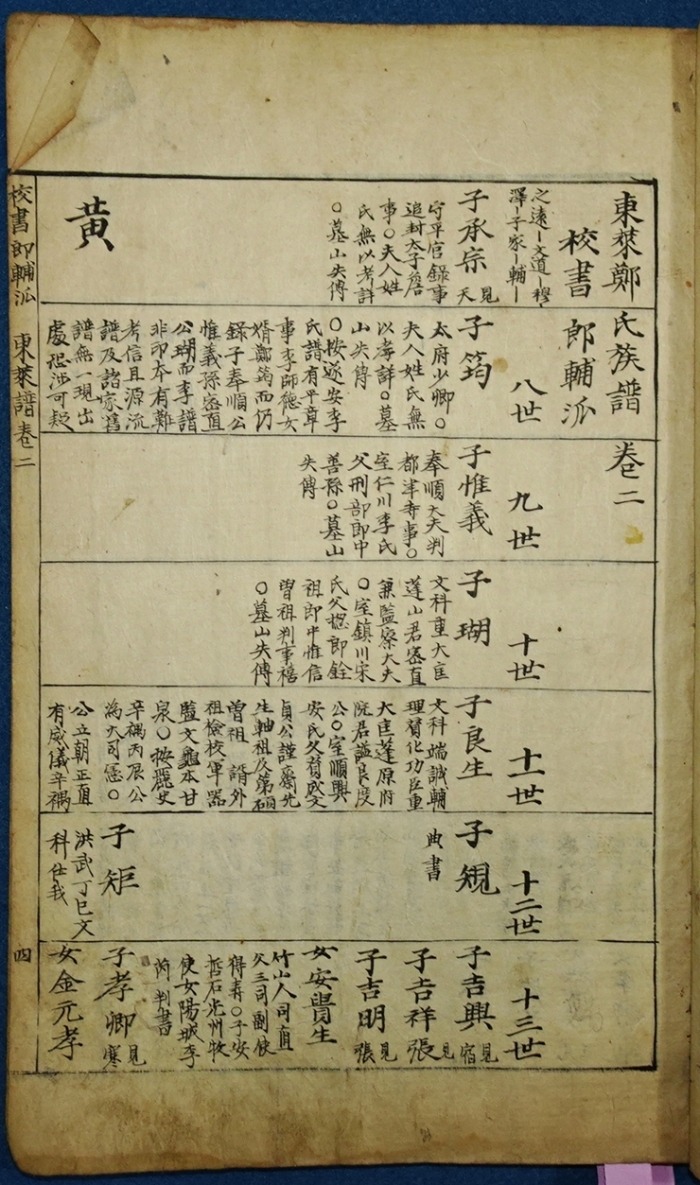 東萊鄭氏族譜 卷二
校書郎輔派
之遠ー文道ー穆ー
澤ー子家ー輔ー
八世
九世
十世
十一世
十二世
十三世
子承宗 見天
守平官錄事
追封太子詹
事○夫人姓
氏無以考詳
○墓山失傳
黃
子筠
太府少卿○
夫人姓氏無
以考詳○墓
山失傳
○按遂安李
氏譜有平章
事李師德女
婿鄭筠而仍
錄子奉順公
惟義孫密直
公瑚而李譜
非印本有難
考信且源流
譜及諸家舊
譜無一現出
處恐涉可疑
子惟義
奉順大夫判
都津寺事○
室仁川李氏
父刑部郎中
善孫○墓山
失傳
子瑚
文科重大匡
蓬山君密直
兼監察大夫
○室鎮川宋
氏父摠郎銓
祖郎中惟信
曾祖判事禧
○墓山失傳
子良生
文科端誠輔
理贊化功臣重
大匡蓬原府
院君謚良度
公○室順興
安氏父蓊文
貞公謹齋先
生軸祖及第碩
曾祖 婿外
祖檢校軍器
監文龜本甘
泉○按麗史
辛禑丙辰公
為大司憲○
公立朝正直
有威儀辛禑
子規
典書
子矩
洪武丁巳文
科仕我
子吉興 見宿
子吉祥 見張
子吉明 見張
女安貴生
竹山人司直
父三司副使
得壽○子安
哲石光州牧
使女陽城李
芮判書
子孝卿 見寒
女金元孝
校書郎輔派 東萊譜卷二 四